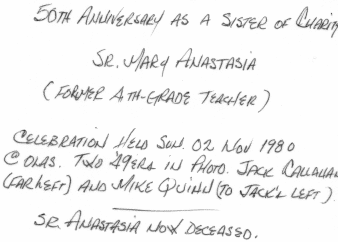 50TH ANNIVERSARY AS A SISTER OF CHARITY
SR. MARY ANASTASIA
(FORMER 4TH-GRADE TEACHER)
CELEBRATION HELD SUN. 02 NOV 1980
@ OLAS. TWO '49ERS IN PHOTO. JACK CALLAHAN
(FAR LEFT) AND MIKE QUINN (TO JACK'S LEFT).
SR. ANASTASIA NOW DECEASED.